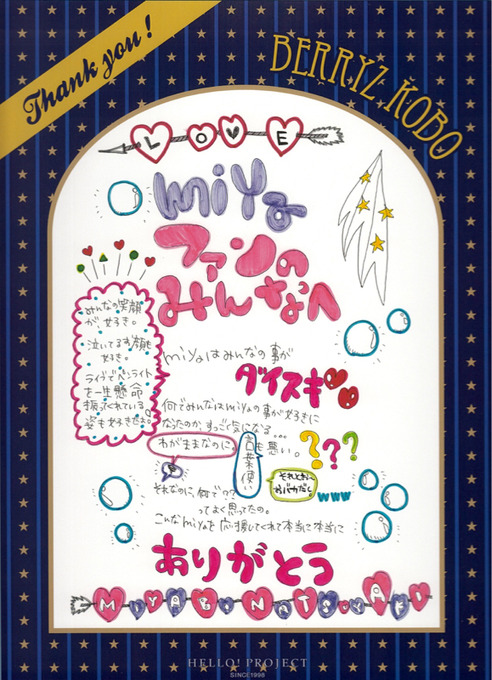 Thank you!
BERRYZ KOBO
LOVE
miya
ファンの
みんなへ
みんなの笑顔
が、好き。
泣いてる顔も
好き。
ライブでペンライト
を一生懸命
振ってくれている
姿も好きだよ。
miyaはみんなの事が
ダイスキ
何でみんなはmiyaの事が好きに
なったのか、すっごく気になる...
???
わがままなのに。
言葉使い
も悪い。
それとおバカだし。
www
それなのに何で?
ってよく思ってたの。
こんなmiyaを応援してくれて本当に本当に
ありがとう
MIYABI NATSUYAKI
HELLO! PROJECT
SINCE 1998